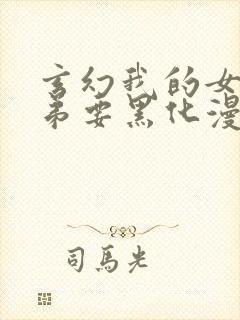 玄幻我的女
弟要黑化漫
司馬光